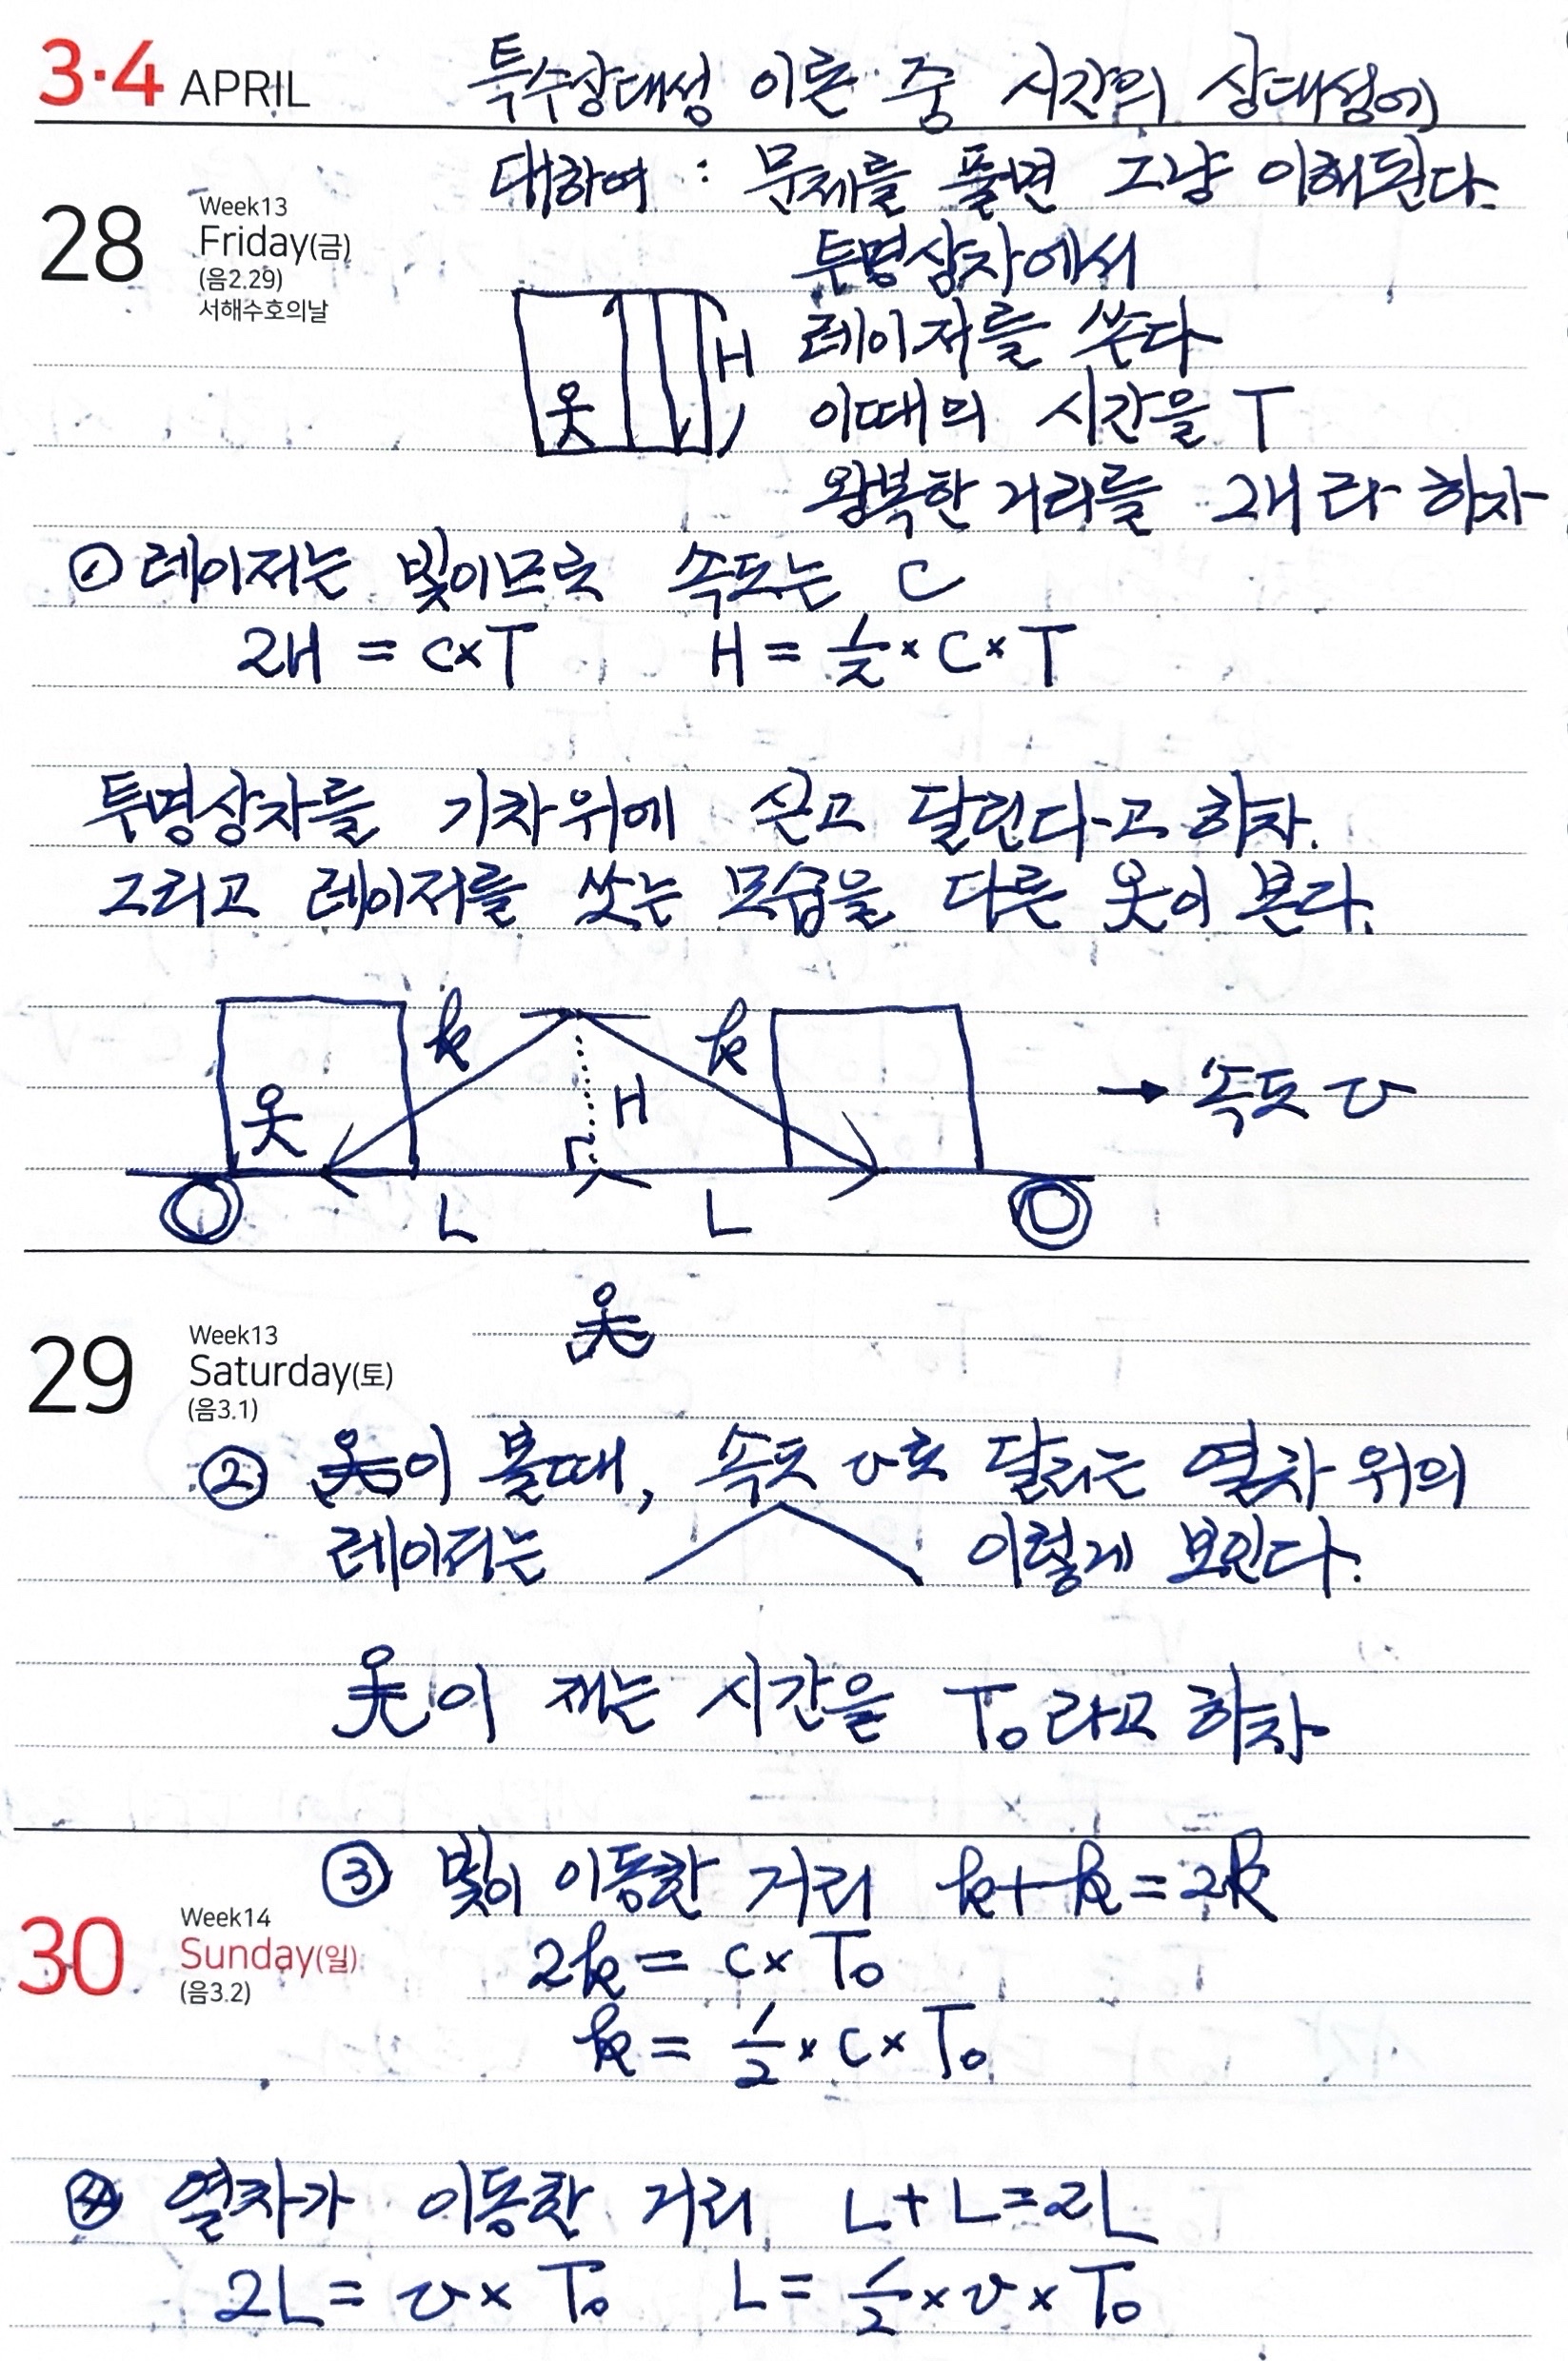 3·4 APRIL
특수상대성 이론 중 시간의 상대성에
대하여 : 문제를 풀면 그냥 이해된다.
28
Week13
Friday(금)
(음2.29)
서해수호의날
투명상자에서
H
레이저를 쏜다
이때의 시간을 T
왕복한 거리를 2H라 하자
① 레이저는 빛이므로 속도는 C
2H = c×T H = 1/2 × C × T
투명상자를 기차위에 싣고 달린다고 하자.
그리고 레이저를 쏘는 모습을 다른 옷이 본다.
k k
H
→ 속도 v
L L
29
Week13
Saturday(토)
(음3.1)
② 옷이 볼때, 속도 v로 달리는 열차 위의
레이저는 이렇게 보인다.
옷이 재는 시간을 T₀라고 하자
③ 빛이 이동한 거리 k+k=2k
30
Week14
Sunday(일)
(음3.2)
2k = c× T₀
k = 1/2 × c × T₀
④ 열차가 이동한 거리 L+L=2L
2L = v× T₀ L = 1/2 × v × T₀